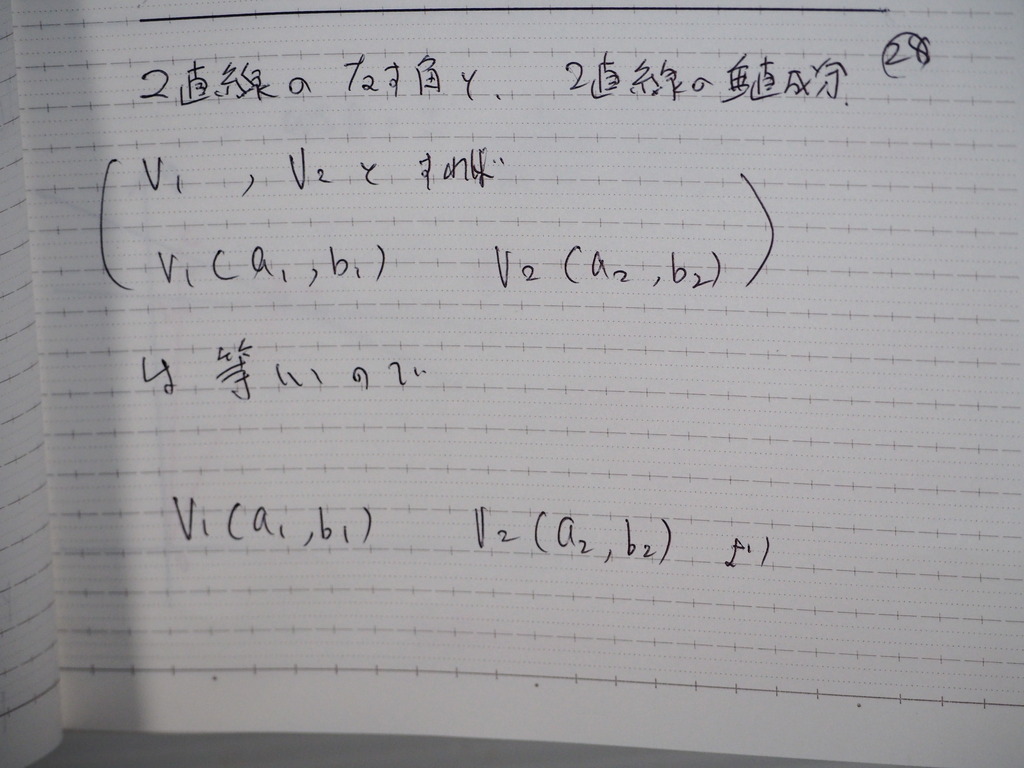 2直線のなす角と、2直線の垂直成分 ㉘
(V₁ , V₂とすれば
V₁(a₁,b₁) V₂(a₂,b₂))
は等しいので
V₁(a₁,b₁) V₂(a₂,b₂) より